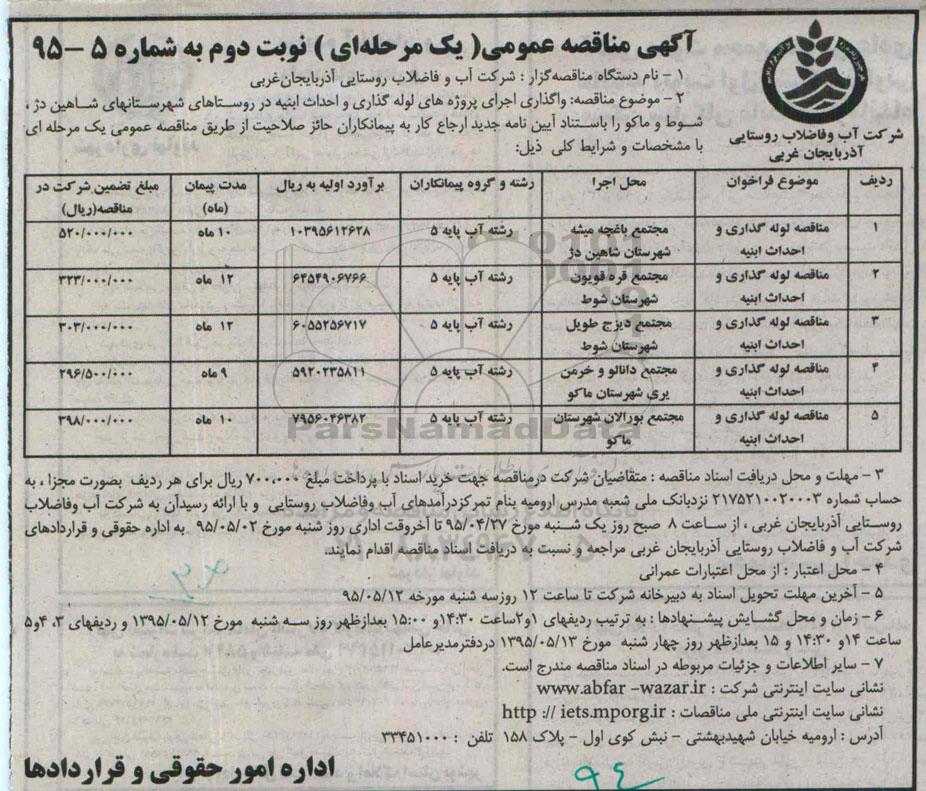 آگهی مناقصه عمومی( یک مرحله‌ای ) نوبت دوم به شماره ۵ – ۹۵
شرکت آب وفاضلاب روستایی
آذربایجان غربی
۱ – نام دستگاه مناقصه‌گزار : شرکت آب و فاضلاب روستایی آذربایجان‌غربی
۲ – موضوع مناقصه: واگذاری اجرای پروژه های لوله گذاری و احداث ابنیه در روستاهای شهرستانهای شاهین دژ ،
شوط و ماکو را باستناد آیین نامه جدید ارجاع کار به پیمانکاران حائز صلاحیت از طریق مناقصه عمومی یک مرحله ای
با مشخصات و شرایط کلی ذیل:
ردیف موضوع فراخوان محل اجرا رشته و گروه پیمانکاران برآورد اولیه به ریال مدت پیمان (ماه) مبلغ تضمین شرکت در مناقصه(ریال)
۱ مناقصه لوله گذاری و احداث ابنیه مجتمع باغچه میشه شهرستان شاهین دژ رشته آب پایه ۵ ۱۰۳۹۵۶۱۲۶۲۸ ۱۰ ماه ۵۲۰/۰۰۰/۰۰۰
۲ مناقصه لوله گذاری و احداث ابنیه مجتمع قره قویون شهرستان شوط رشته آب پایه ۵ ۶۴۵۴۹۰۶۷۶۶ ۱۲ ماه ۳۲۳/۰۰۰/۰۰۰
۳ مناقصه لوله گذاری و احداث ابنیه مجتمع دیزج طویل شهرستان شوط رشته آب پایه ۵ ۶۰۵۵۲۵۶۷۱۷ ۱۲ ماه ۳۰۳/۰۰۰/۰۰۰
۴ مناقصه لوله گذاری و احداث ابنیه مجتمع دانالو و خرمن یری شهرستان ماکو رشته آب پایه ۵ ۵۹۲۰۲۳۵۸۱۱ ۹ ماه ۲۹۶/۵۰۰/۰۰۰
۵ مناقصه لوله گذاری و احداث ابنیه مجتمع بورالان شهرستان ماکو رشته آب پایه ۵ ۷۹۵۶۰۴۶۳۸۲ ۱۰ ماه ۳۹۸/۰۰۰/۰۰۰
ParsNamadData
۳ – مهلت و محل دریافت اسناد مناقصه : متقاضیان شرکت درمناقصه جهت خرید اسناد با پرداخت مبلغ ۷۰۰،۰۰۰ ریال برای هر ردیف بصورت مجزا ، به
حساب شماره ۲۱۷۵۲۱۰۰۲۰۰۰۳ نزدبانک ملی شعبه مدرس ارومیه بنام تمرکزدرآمدهای آب وفاضلاب روستایی و با ارائه رسیدآن به شرکت آب وفاضلاب
روستایی آذربایجان غربی ، از ساعت ۸ صبح روز یک شنبه مورخ ۹۵/۰۴/۲۷ تا آخروقت اداری روز شنبه مورخ ۹۵/۰۵/۰۲ به اداره حقوقی و قراردادهای
شرکت آب و فاضلاب روستایی آذربایجان غربی مراجعه و نسبت به دریافت اسناد مناقصه اقدام نمایند.
۴ – محل اعتبار : از محل اعتبارات عمرانی
۵ – آخرین مهلت تحویل اسناد به دبیرخانه شرکت تا ساعت ۱۲ روزسه شنبه مورخه ۹۵/۰۵/۱۲
۶ – زمان و محل گشایش پیشنهادها : به ترتیب ردیفهای ۱و۲ساعت ۱۴:۳۰و ۱۵:۰۰ بعدازظهر روز سه شنبه مورخ ۱۳۹۵/۰۵/۱۲ و ردیفهای ۳، ۴و۵
ساعت ۱۴و ۱۴:۳۰ و ۱۵ بعدازظهر روز چهار شنبه مورخ ۱۳۹۵/۰۵/۱۳ دردفترمدیرعامل
۷ – سایر اطلاعات و جزئیات مربوطه در اسناد مناقصه مندرج است.
نشانی سایت اینترنتی شرکت : www.abfar -wazar.ir
نشانی سایت اینترنتی ملی مناقصات : http :// iets.mporg.ir
آدرس : ارومیه خیابان شهیدبهشتی – نبش کوی اول – پلاک ۱۵۸ تلفن : ۳۳۴۵۱۰۰۰
اداره امور حقوقی و قراردادها